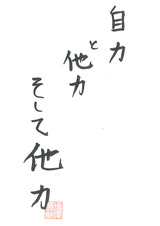 自力
と
他力
そして他力